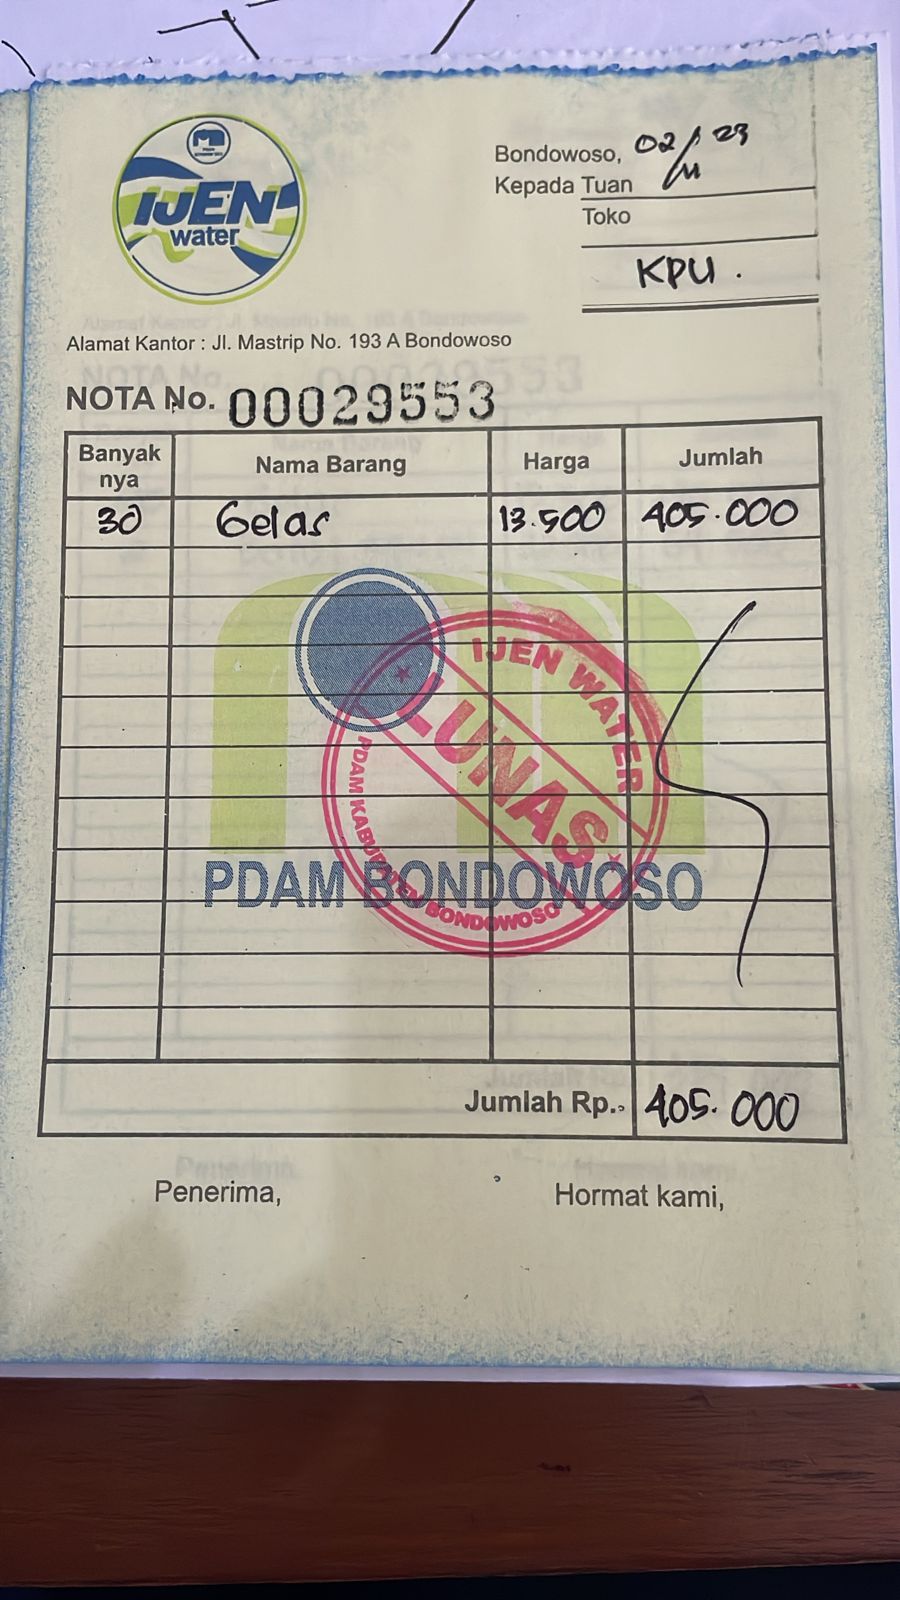 IJEN
water
Bondowoso, 02/11 23
Kepada Tuan
Toko
KPU.
Alamat Kantor : Jl. Mastrip No. 193 A Bondowoso
NOTA No. 00029553
Banyak nya Nama Barang Harga Jumlah
30 Gelas 13.500 405.000
IJEN WATER
LUNAS
PDAM KABUPATEN BONDOWOSO
PDAM BONDOWOSO
Jumlah Rp. 405.000
Penerima, Hormat kami,